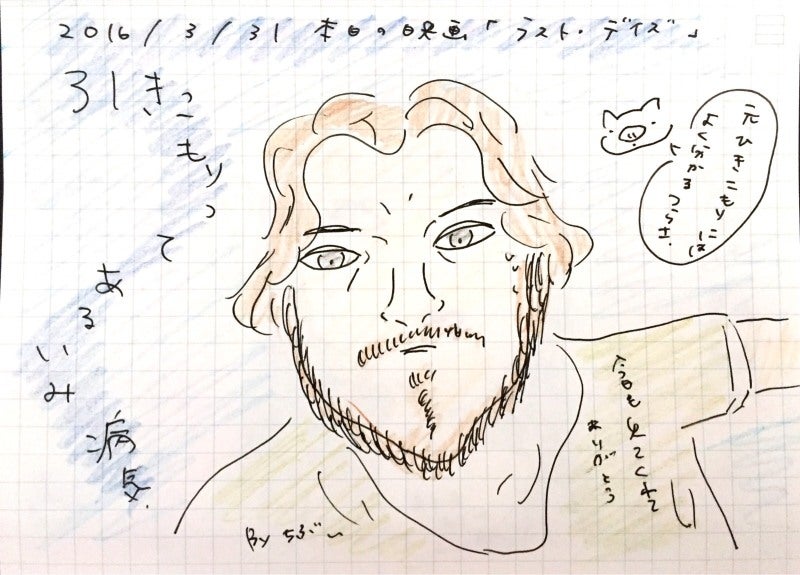 2016/3/31 本日の映画「ラスト・デイズ」
引きこもりって
あるいみ
病気.
元ひきこもりには
よく分かる
つらさ.
今日も見てくれて
ありがとう
By